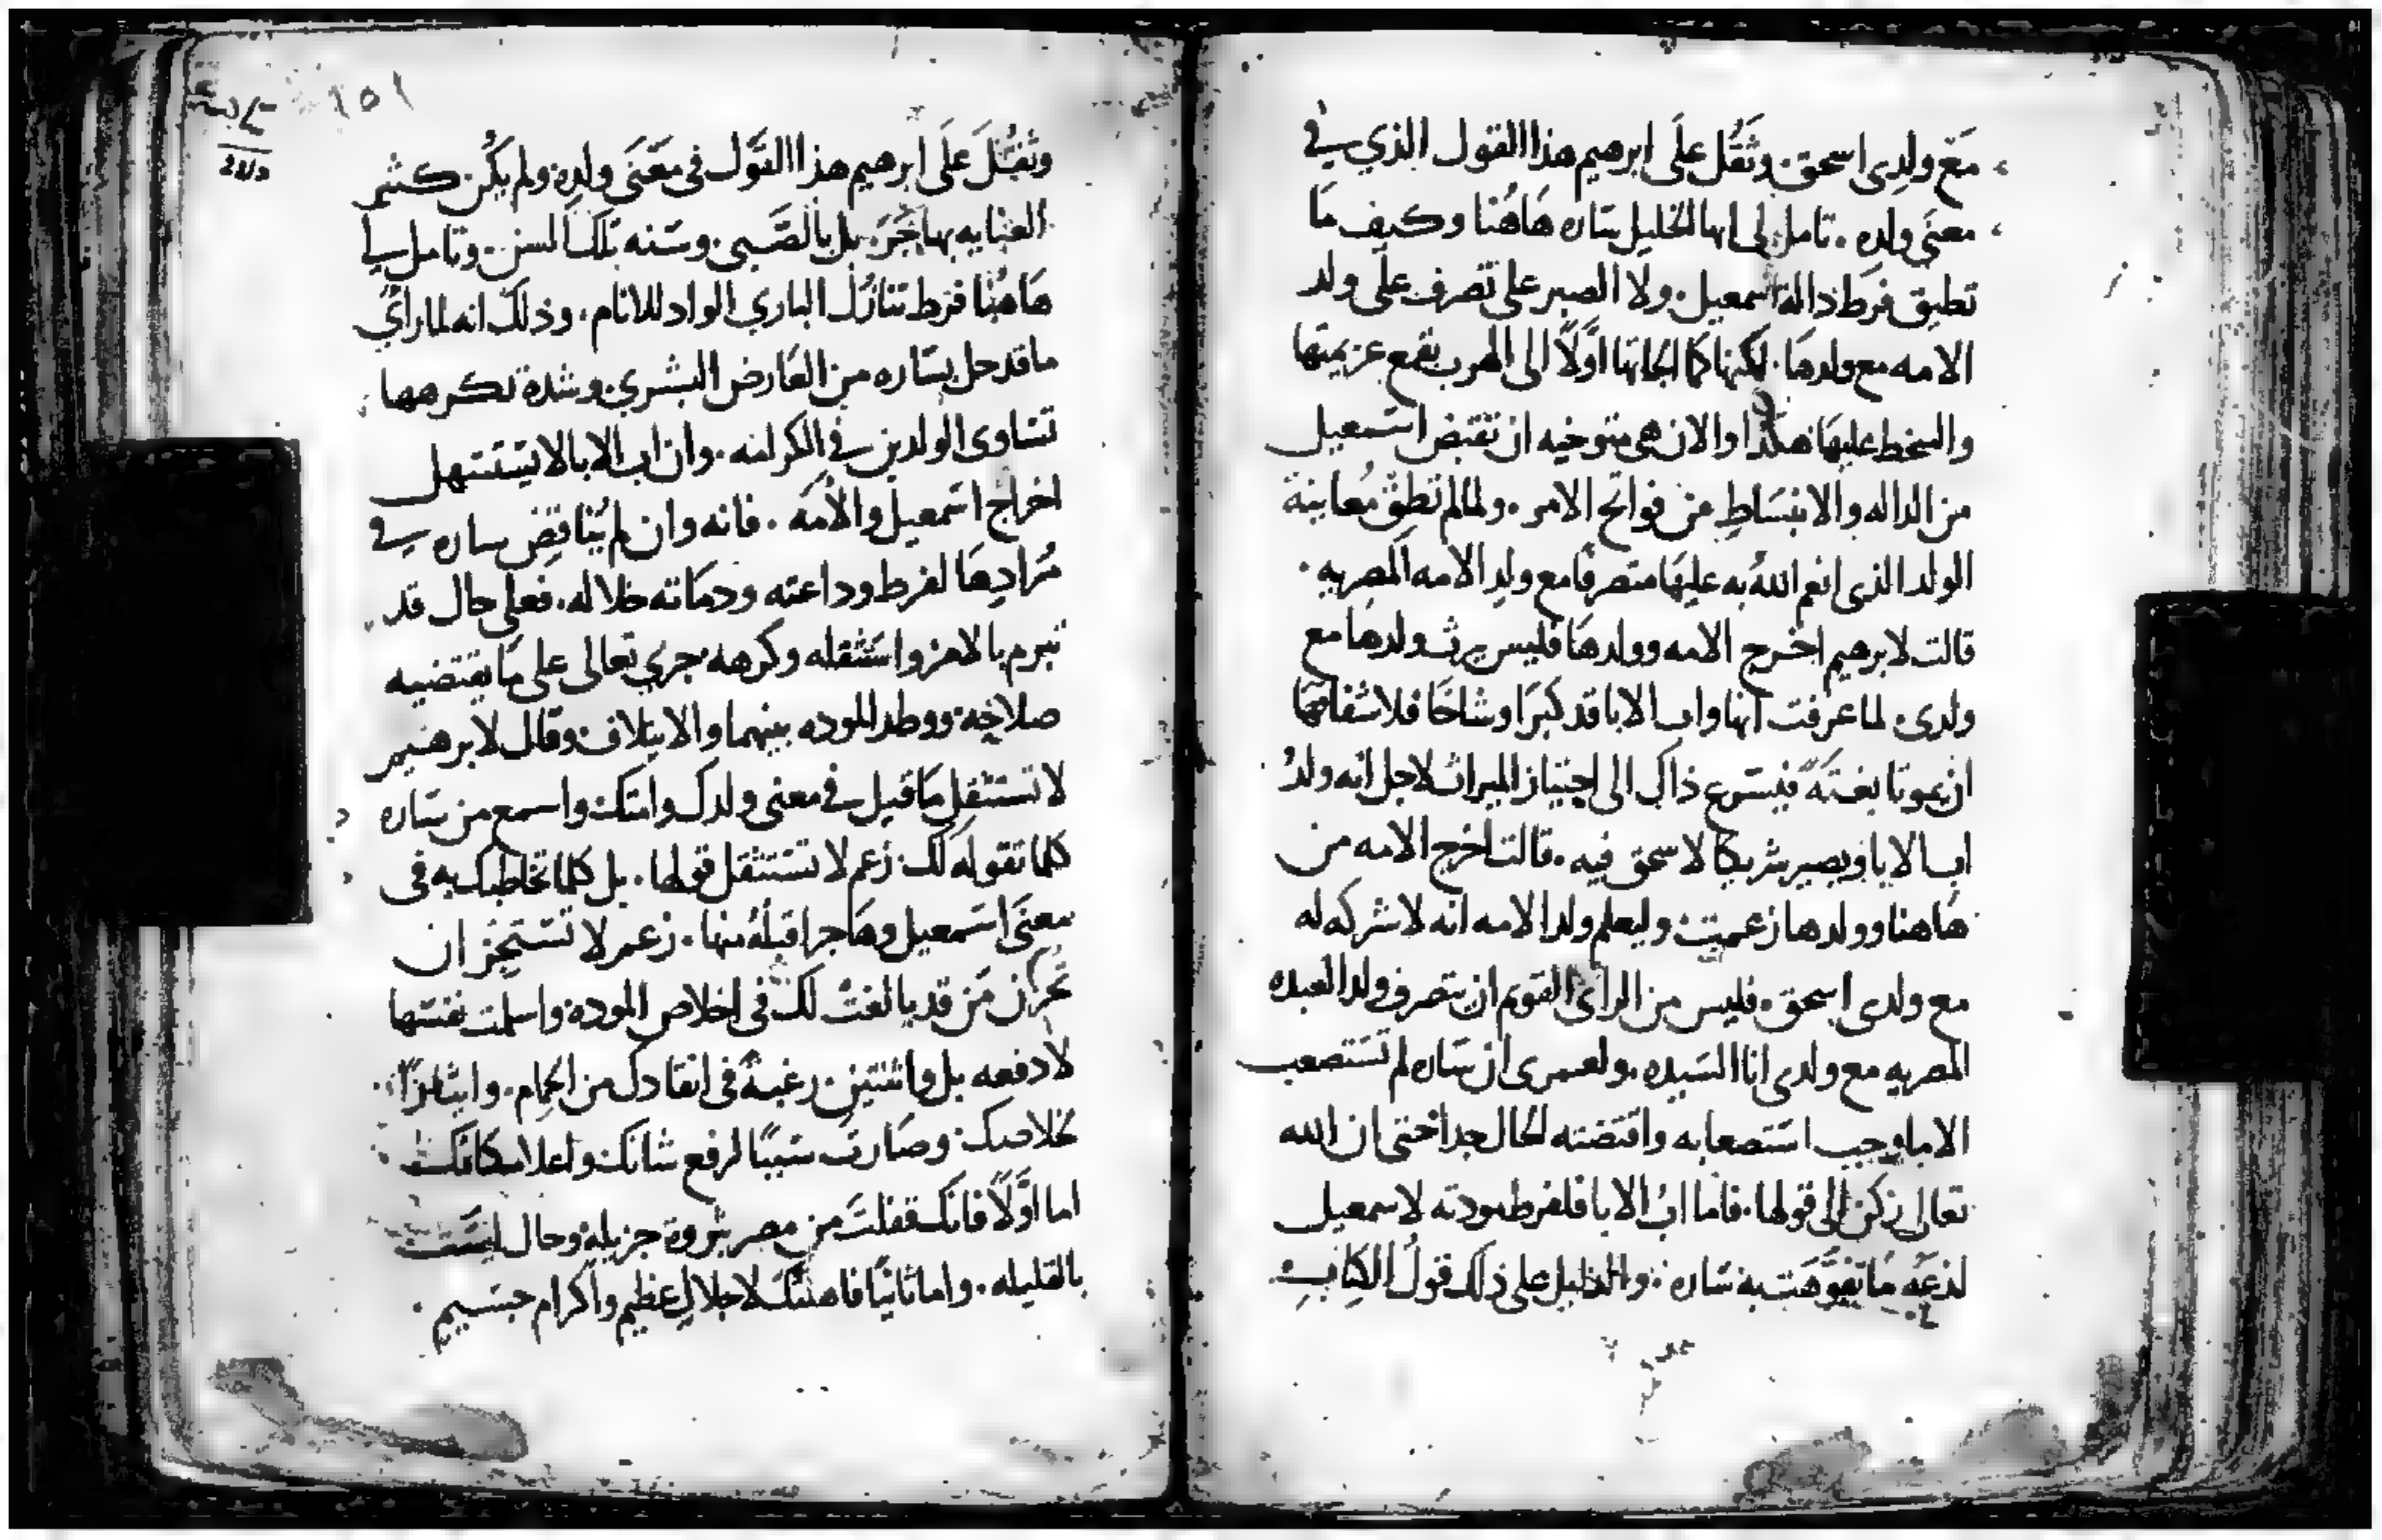 مَع ولدي اسحق. وثَقُل علَى ابرهيم هذا القول الذي في
معنَى ولده. تامل لي ايها الخليل ساره هَاهُنا وكيف مَا
تطيق فرَط دالة اسمعيل. ولا الصبر على تصرف على ولد
الامه مع ولدهَا. لكنها كما الجاتها اوَّلاً الى الهرب بقمع عزيمتها
والسخط عليهَا هكذا والان هي متوخيه ان تقبض اسمعيل
من الداله والانبسَاطِ من فواتح الامر. ولما لم تطِق مُعاينة
الولد الذي انعم اللهُ به عليهَا متصرفًا مع ولدِ الامه المصريه.
قالت لابرهيم اخرج الامه وولدهَا فليس يرث ولدهَا مع
ولدي. لما عرفت انها واب الابا قد كبرَا وشاخَا فلاشفاقهما
ان يموتا بغتَةً فيسَرع ذاك الى اجتياز الميراث لاجل انه ولدُ
اب الابا ويصير شريكًا لاسحق فيه. قالت اخرج الامه من
هَاهنا وولدها زعمت. وليعلم ولد الامه انه لا شركه له
مع ولدي اسحق. فليس من الراي القويم ان يتصرف ولد العبده
المصريه مع ولدي انا السَيده. ولعمري ان سَاره لم تستصعب
الا ما وجب استصعابه واقتضته الحال جدا حتى ان الله
تعالى ركن الى قولها. فاما ابُ الابا فلفرط مودته لاسمعيل
لذعَه مَا تفوَّهَت به سَاره. والدليل على ذلك قولُ الكِتَابِ
١٥١
وثقُلَ علَى ابرهيم هذا القَول في معَنَى ولدِه. ولم يَكُن كثير
العنايه بهاجَرَ. بل بالصَبي. وسَنه تلك السن. وتامل لي
هَاهُنا فرَط تنازُل الباري الواد للانام. وذلك انه لما راَى
ما قد حل بسَاره من العَارض البشري. وشدة تكرهها
تسَاوى الولدين في الكرامه. وان اب الابا لا يستسهل
اخراج اسَمعيل والاَمَه. فانه وان لم يُنَاقِض ساره في
مُرادِهَا لفرط وداعته ودمَاثه خلاله. فعلى حال قد
تبرم بالامر واستَثقله وكرهه جري تعالى على مَا يقتضيه
صلاحِه. ووطد الموده بينهما والايتلاف. وقال لابرهيم
لا تستثقل مَا قيل في معنى ولدك وامتك واسمع من سَاره
كلما تقوله لَك. زعم لا تستثقل قولها. بل كلما تخاطبك به في
معنَى اسَمعيل وهَاجر اقبلهُ منها. زعم لا تستَجِز ان
تحزن مَن قد بالغَتْ لك في اخلاص الموده. واسلمت نفسَها
لا دفعه بل واثنتين. رغبةً في انقادك من الحِمام. وايثارًا
لخلاصك. وصَارت سَبَبًا لرفع شانك. واعلا مكانك.
اما اوَّلاً فانَك قفلتَ من مصر بثروة جزيله. وحال ليسَت
بالقليله. واما ثانيًا فاهلتك لاجلالِ عظيم واكرام جَسيم.